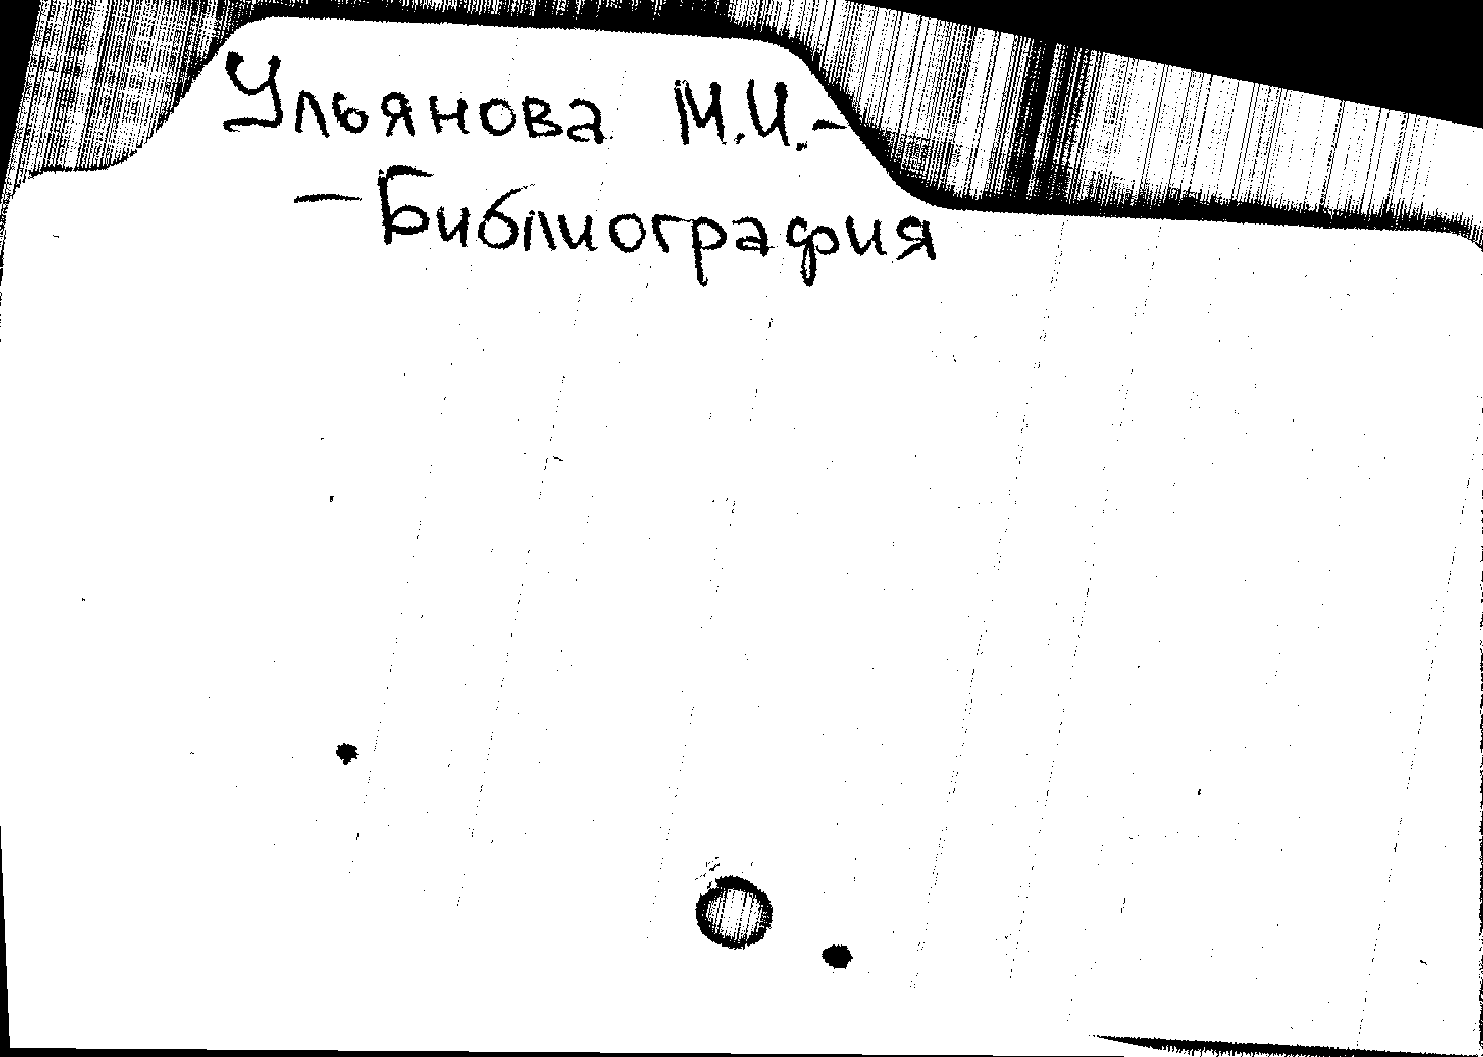 Ульянова М.И.-
-Библиография